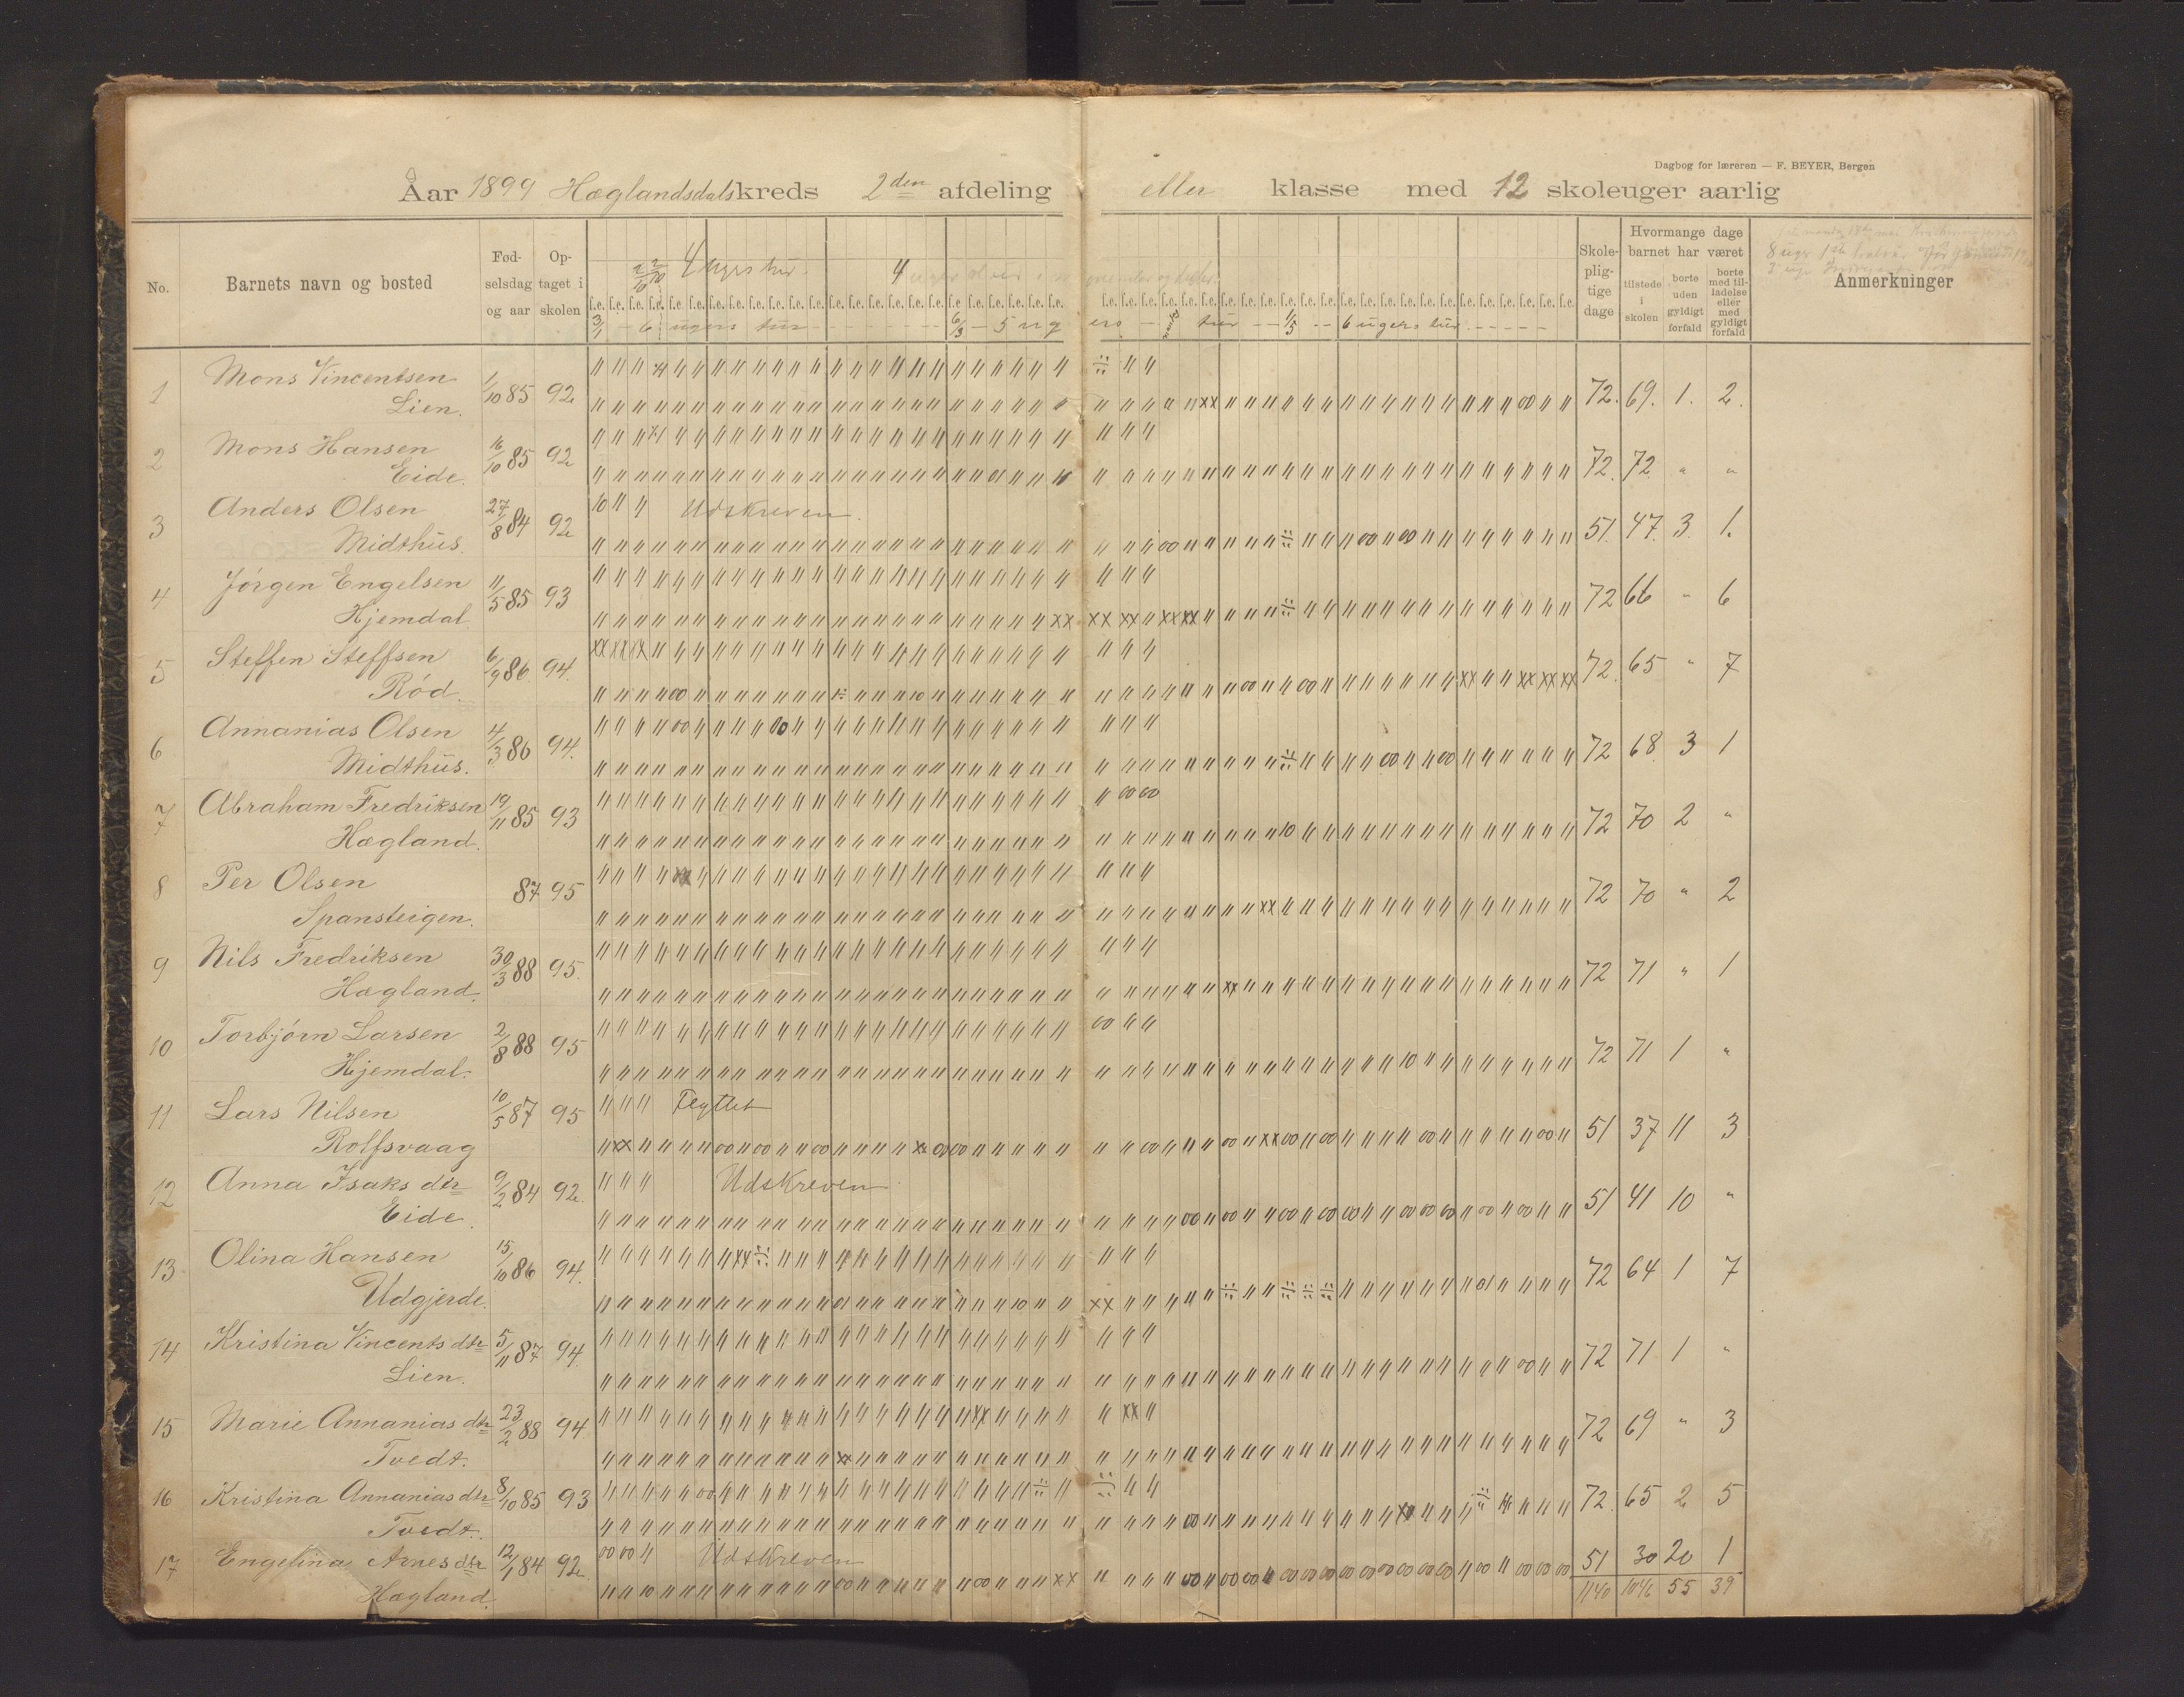 Dagbog for læreren — F. BEYER, Bergen
Aar 1899 Hæglandsdals kreds 2den afdeling eller klasse med 12 skoleuger aarlig
No. Barnets navn og bosted Fødselsdag og aar Optaget i skolen Skolepligtige dage Hvormange dage barnet har været tilstede i skolen borte uden gyldigt forfald borte med tilladelse eller med gyldigt forfald Anmerkninger
4 ugers tur. 4
3/1 - 6 ugers tur - 6/3 - 5 ugers - tur - 1/5 - 6 ugers tur
1 Mons Vincentsen 1/10 85 92 72. 69. 1. 2.
Lien.
2 Mons Hansen 16/10 85 92 72. 72. " "
Eide.
3 Anders Olsen 27/8 84 92 Udskreven. 51. 47. 3. 1.
Midthus.
4 Jørgen Engelsen 11/5 85 93 72 66 " 6
Hjemdal.
5 Steffen Steffsen 6/9 86. 94. 72. 65 " 7
Rød.
6 Annanias Olsen 4/3 86 94. 72 68. 3 1
Midthus.
7 Abraham Fredriksen 19/11 85 93 72 70 2 "
Hægland.
8 Per Olsen 87 95 72 70 " 2
Spansteigen.
9 Nils Fredriksen 30/3 88 95. 72 71 " 1
Hægland.
10 Torbjørn Larsen 2/8 88 95 72 71 1 "
Hjemdal.
11 Lars Nilsen 10/5 87 95 Flyttet 51 37 11 3
Rolfsvaag
12 Anna Isaks dtr 9/2 84 92. Udskreven 51 41 10 "
Eide.
13 Olina Hansen 15/10 86 94. 72 64 1 7
Udgjerde.
14 Kristina Vincents dtr 5/11 87 94. 72 71 1 "
Lien.
15 Marie Annanias dtr 23/2 88 94 72 69 " 3
Tvedt.
16 Kristina Annanias dtr 8/10 85 93 72. 65 2 5
Tvedt.
17 Engelina Arnes dtr 12/1 84 92. Udskreven 51 30 20 1
Hægland.
1140 1046 55 39